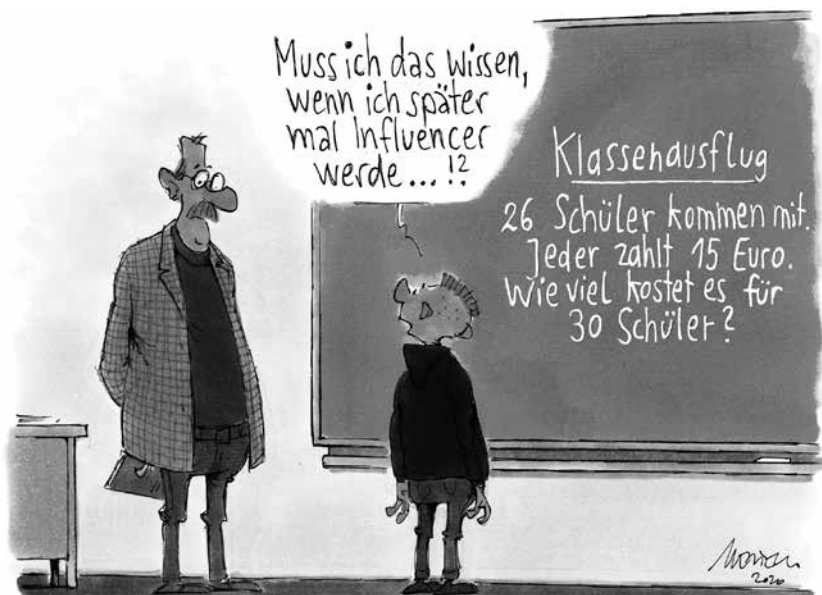 Muss ich das wissen,
wenn ich später
mal Influencer
werde...!?
Klassenausflug
26 Schüler kommen mit.
Jeder zahlt 15 Euro.
Wie viel kostet es für
30 Schüler?
2020